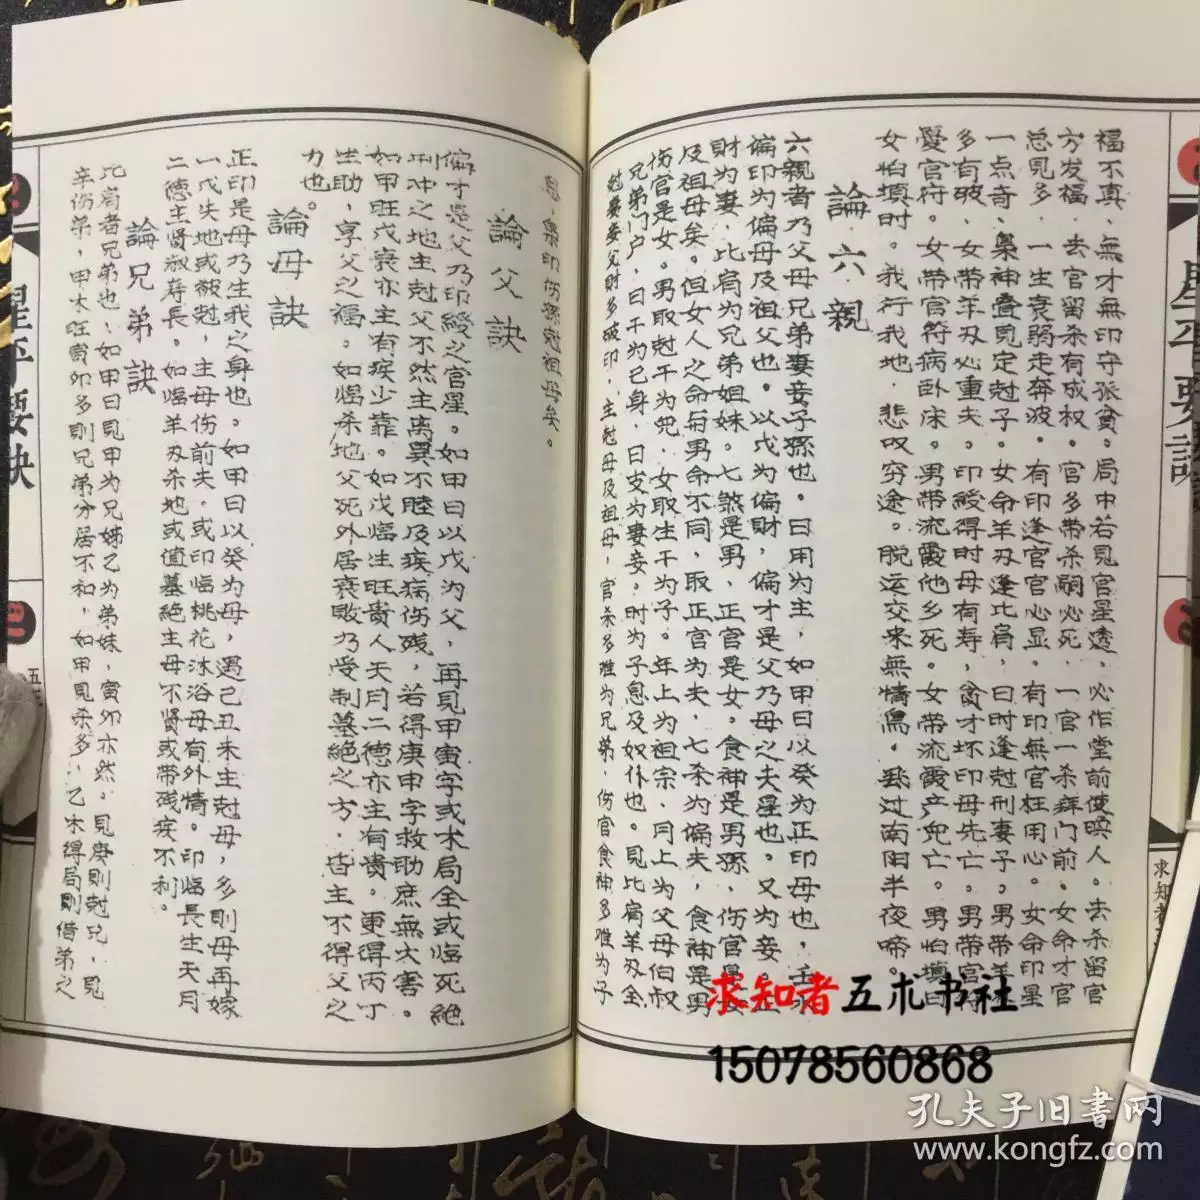 福不真，無才無印守张貧。局中若見官星透，必作堂前使唤人。去杀留官
方发福，去官留杀有成权。官多带杀嗣必死，一官一杀拜门前。女命才官
总見多，一生衰弱走奔波。有印逢官官必显。有印無官枉用心。女命印星
一点奇，枭神叠見定尅子。女命羊刃逢比肩，日时逢尅刑妻子。男带羊
多有破，女带羊刃必重夫。印綬得时母有寿，貪才坏印母先亡。男带官符
愛官府。女带官符病卧床。男带流霞他乡死。女带流霞产兜亡。男怕填日
女怕填时。我行我地，悲叹穷途。脱运交来無情焉。飛过南阳半夜啼。
論六親
六親者乃父母兄弟妻妾子孫也。日用为主，如甲日以癸为正印母也，壬
偏印为偏母及祖父也。以戊为偏財，偏才是父乃母之夫星也。又为妾。
財为妻，比肩为兄弟姐妹。七煞是男，正官是女。食神是男孫，伤官是女
及祖母矣。但女人之命与男命不同，取正官为夫，七杀为偏夫，食神是男
伤官是女。男取尅干为兜，女取生干为子。年上为祖宗，月上为父母伯叔
兄弟门户，日干为己身，日支为妻妾。时为子息及奴仆也。見比肩羊刃全
尅妻妾父財多破印，主尅母及祖母，官杀多难为兄弟，伤官食神多难为子
息，梟印伤孫尅祖母矣。
論父訣
偏才是父乃印綬之官星。如甲日以戊为父，再見甲寅字或木局全或临死絶
刑冲之地主尅父不然主离異不睦及疾病伤残，若得庚申字救助庶無大害。
如甲旺戊衰亦主有疾少靠。如戊临生旺贵人天月二德亦主有贵。更得丙丁
生助，享父之福。如临杀地父死外居衰败乃受制墓絶之方，皆主不得父之
力也。
論母訣
正印是母乃生我之身也。如甲日以癸为母，遇己丑未主尅母，多則母再嫁
一戊失地或被尅，主母伤前夫。或印临桃花沐浴母有外情。印临長生天月
二德主賢淑寿長。如临羊刃杀地或值墓絶主母不賢或带残疾不利。
論兄弟訣
比肩者兄弟也，如甲日見甲为兄姊乙为弟妹，寅卯亦然。見庚則尅兄，見
辛伤弟，甲木旺寅卯多則兄弟分居不和，如甲見杀多，乙木得局則借弟之
星平要訣
求知者五术书社
15078560868
孔夫子旧書网
www.kongfz.com